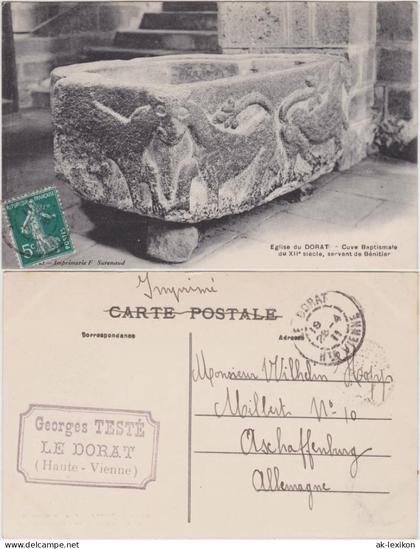 Eglise du DORAT - Cuve Baptismale
du XIIe siècle, servant de Bénitier
5c
POSTES
Imprimerie F Surenaud
Imprimé
CARTE POSTALE
Correspondance
Adresse
LE DORAT
19
28-4
11
HTE VIENNE
Georges TESTÉ
LE DORAT
(Haute-Vienne)
Monsieur Wilhelm Hopp
Millert No 10
Aschaffenburg
Allemagne
© ak-lexikon
ak-lexikon.com